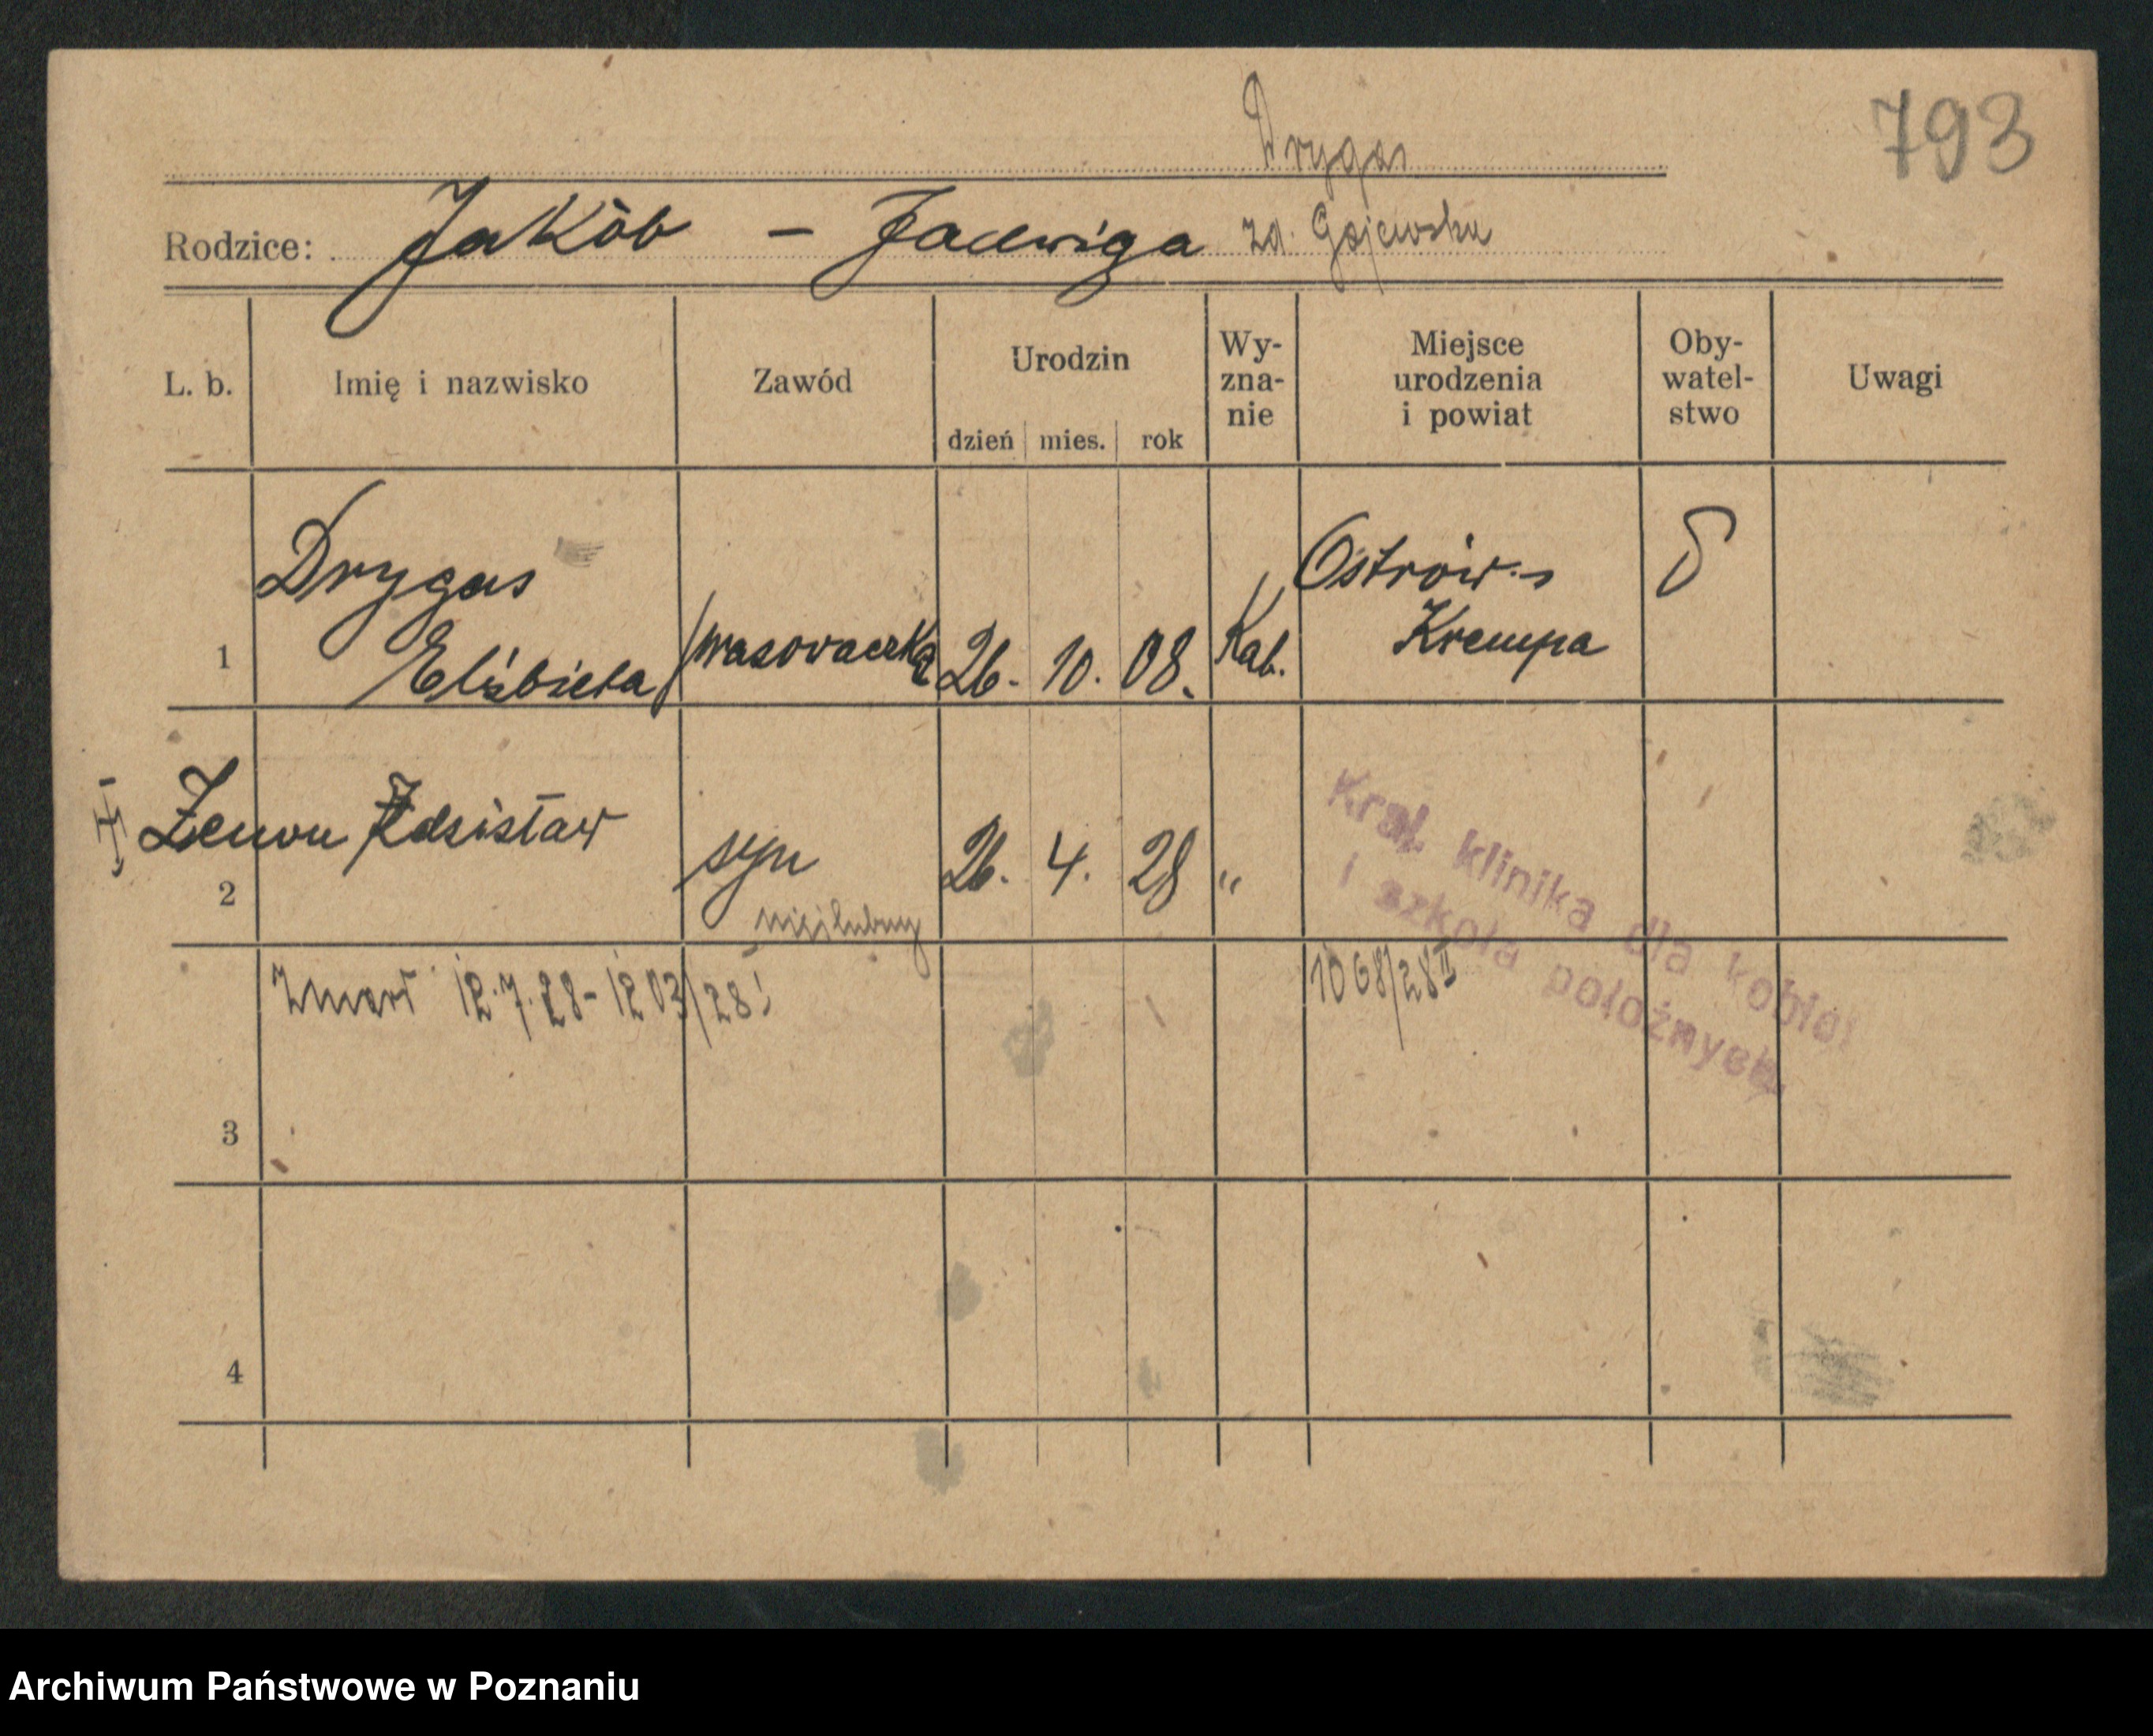 793
Drygas
Rodzice: Jakób – Jadwiga zd. Gajewska
L. b.
Imię i nazwisko
Zawód
Urodzin
dzień mies. rok
Wy-
zna-
nie
Miejsce
urodzenia
i powiat
Oby-
watel-
stwo
Uwagi
1
Drygas
Elżbieta
prasowaczka
26. 10. 08.
Kat.
Ostrów
Krempa
2
Zenon Zdzisław
syn
nieślubny
26. 4. 28
"
Kraj. klinika dla kobiet
i szkoła położnych
Zmarł 12.7.28 - 1203/28
1068/28 II
3
4
Archiwum Państwowe w Poznaniu